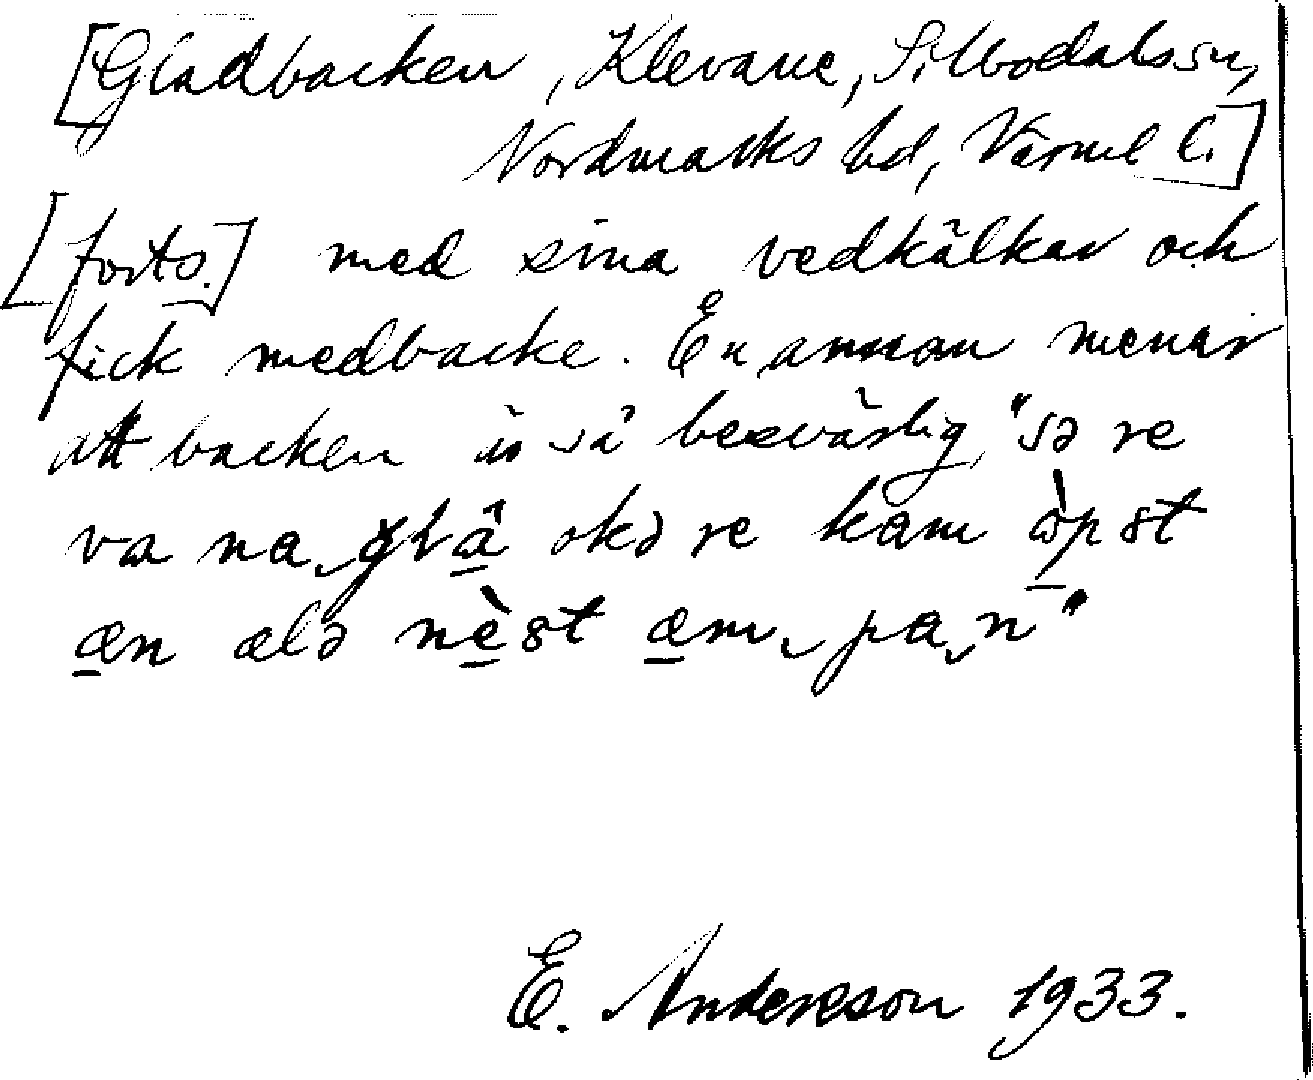 [Gladbacken, Klevane, Silbodals sn,
Nordmarks hd, Värml l.]
[forts.] med sina vedkälkar och
fick medbacke. En annan menar
att backen är så besvärlig, "sə re
va na glâ okə re kam òpst
æn ælə nèst æm pa n"
E. Andersson 1933.